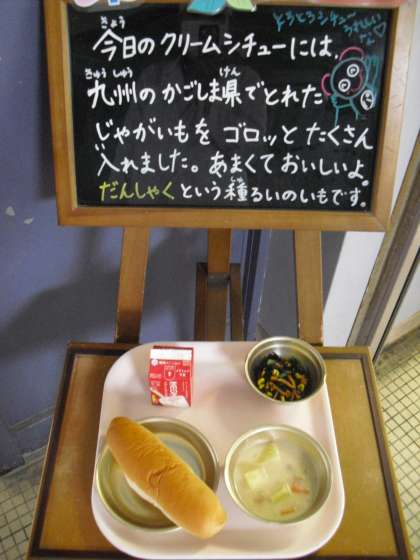 とろとろシチュー
きょう
今日のクリームシチューには、
きゅうしゅう けん
九州のかごしま県でとれた
じゃがいもを ゴロッと たくさん
入れました。あまくておいしいよ。
しゅ
だんしゃくという種るいのいもです。